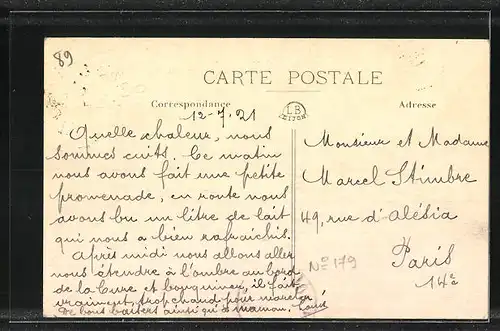 89
CARTE POSTALE
Correspondance
LB
DIJON
Adresse
12-7-21
Quelle chaleur, nous
sommes cuits. Ce matin
nous avons fait une petite
promenade, en route nous
avons bu un litre de lait
qui nous a bien rafraichis.
Après midi nous allons aller
nous étendre à l'ombre au bord
de la Cure et bouquiner, il fait
vraiment trop chaud pour marcher
De bons baisers ainsi qu'à maman,
Monsieur et Madame
Marcel
49, rue d'Alésia
Paris
14e
No 179